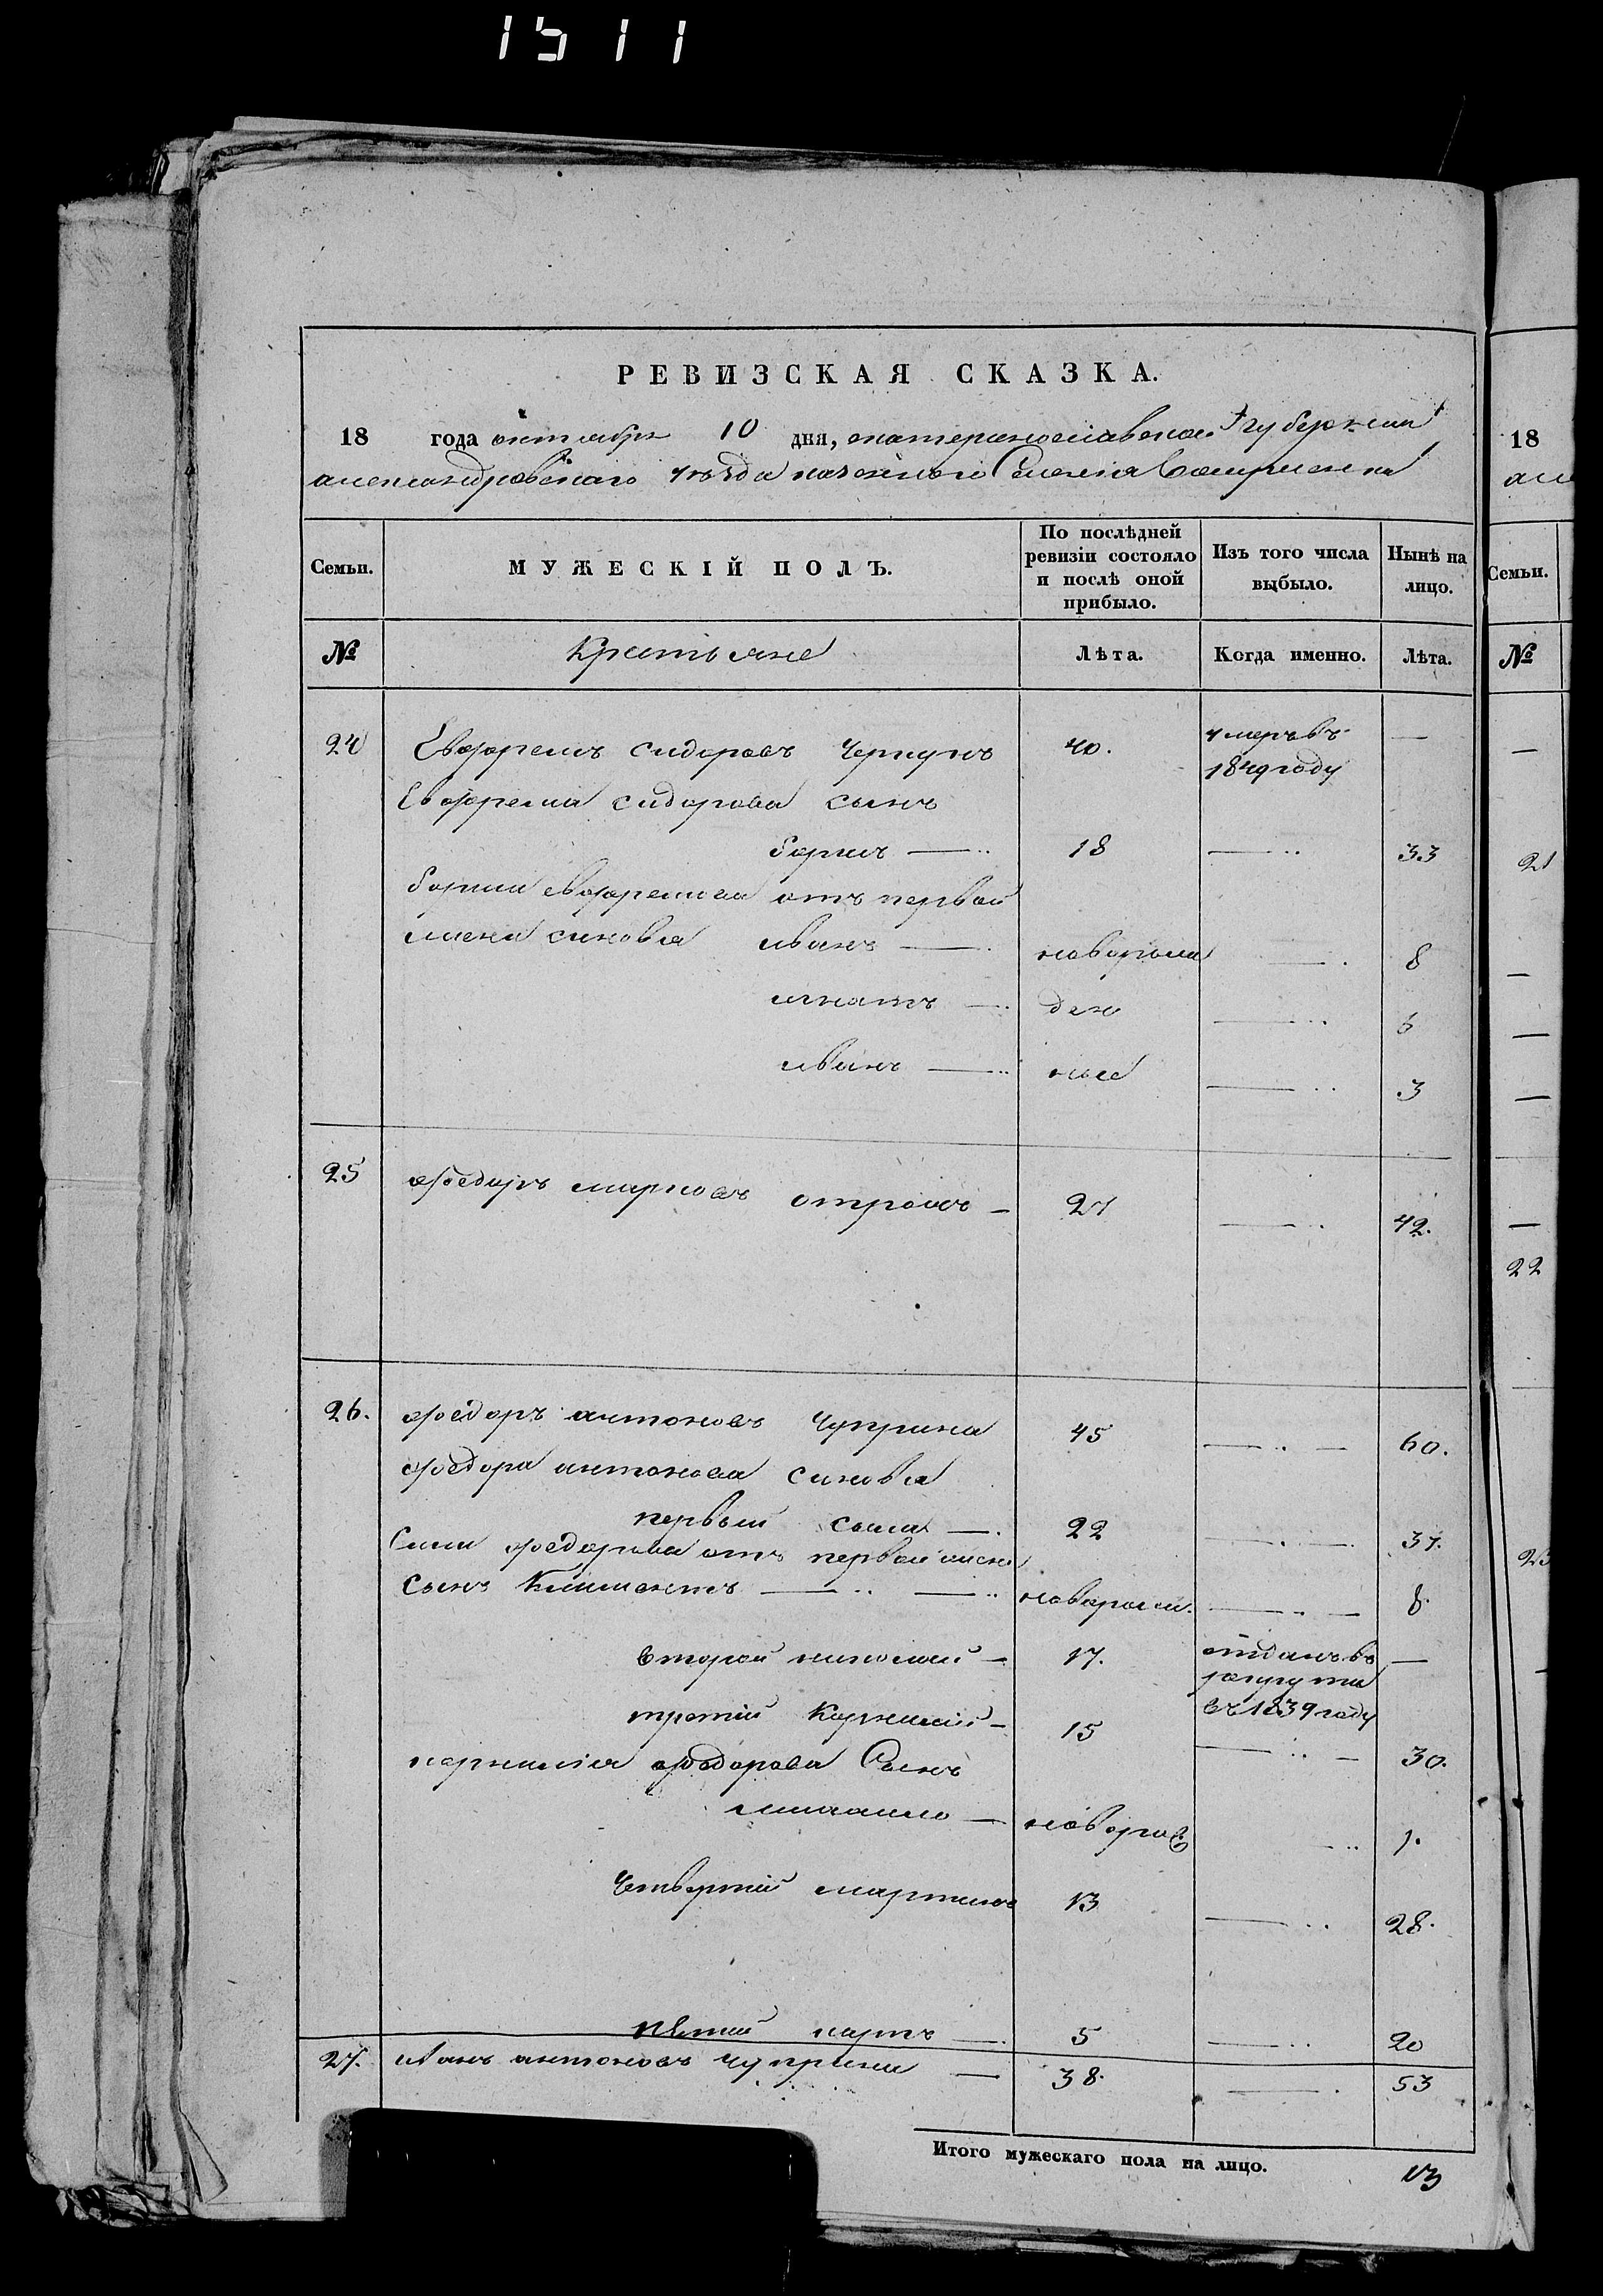 1511
РЕВИЗСКАЯ СКАЗКА.
18 года октября 10 дня, екатеринославской губернии
александровскаго уезда казенного Селения
Семьи. МУЖЕСКІЙ ПОЛЪ. По послѣдней ревизіи состояло и послѣ оной прибыло. Изъ того числа выбыло. Нынѣ на лицо.
№ Крестьяне Лѣта. Когда именно. Лѣта.
24 Евфремъ сидоровъ 40. умеръ въ —
1849 году
Евфрема сидорова сынъ
борисъ — 18 — 33
бориса евфремова отъ первой
жени синовья иванъ — новорожд — 8
игнатъ — ден — 6
иванъ — ные — 3
25 федоръ марковъ — 27 — 42.
26. федоръ антоновъ Чуприна 45 — 60.
федора антонова синовья
первый — 22 — 37.
федорова отъ первой жени
сынъ Климентъ — новорож. — 8.
второй николай — 17. отданъ въ —
рекруты
въ 1839 году
третий Корнилий — 15 — 30.
корнилия федорова Сынъ
михаило — новорож — 1.
Четвертий мартинъ 13 — 28.
пятий карпъ — 5 — 20
27. иванъ антоновъ чуприна — 38. — 53
Итого мужескаго пола на лицо. 13
18
але
Семьи.
№
21
22
23